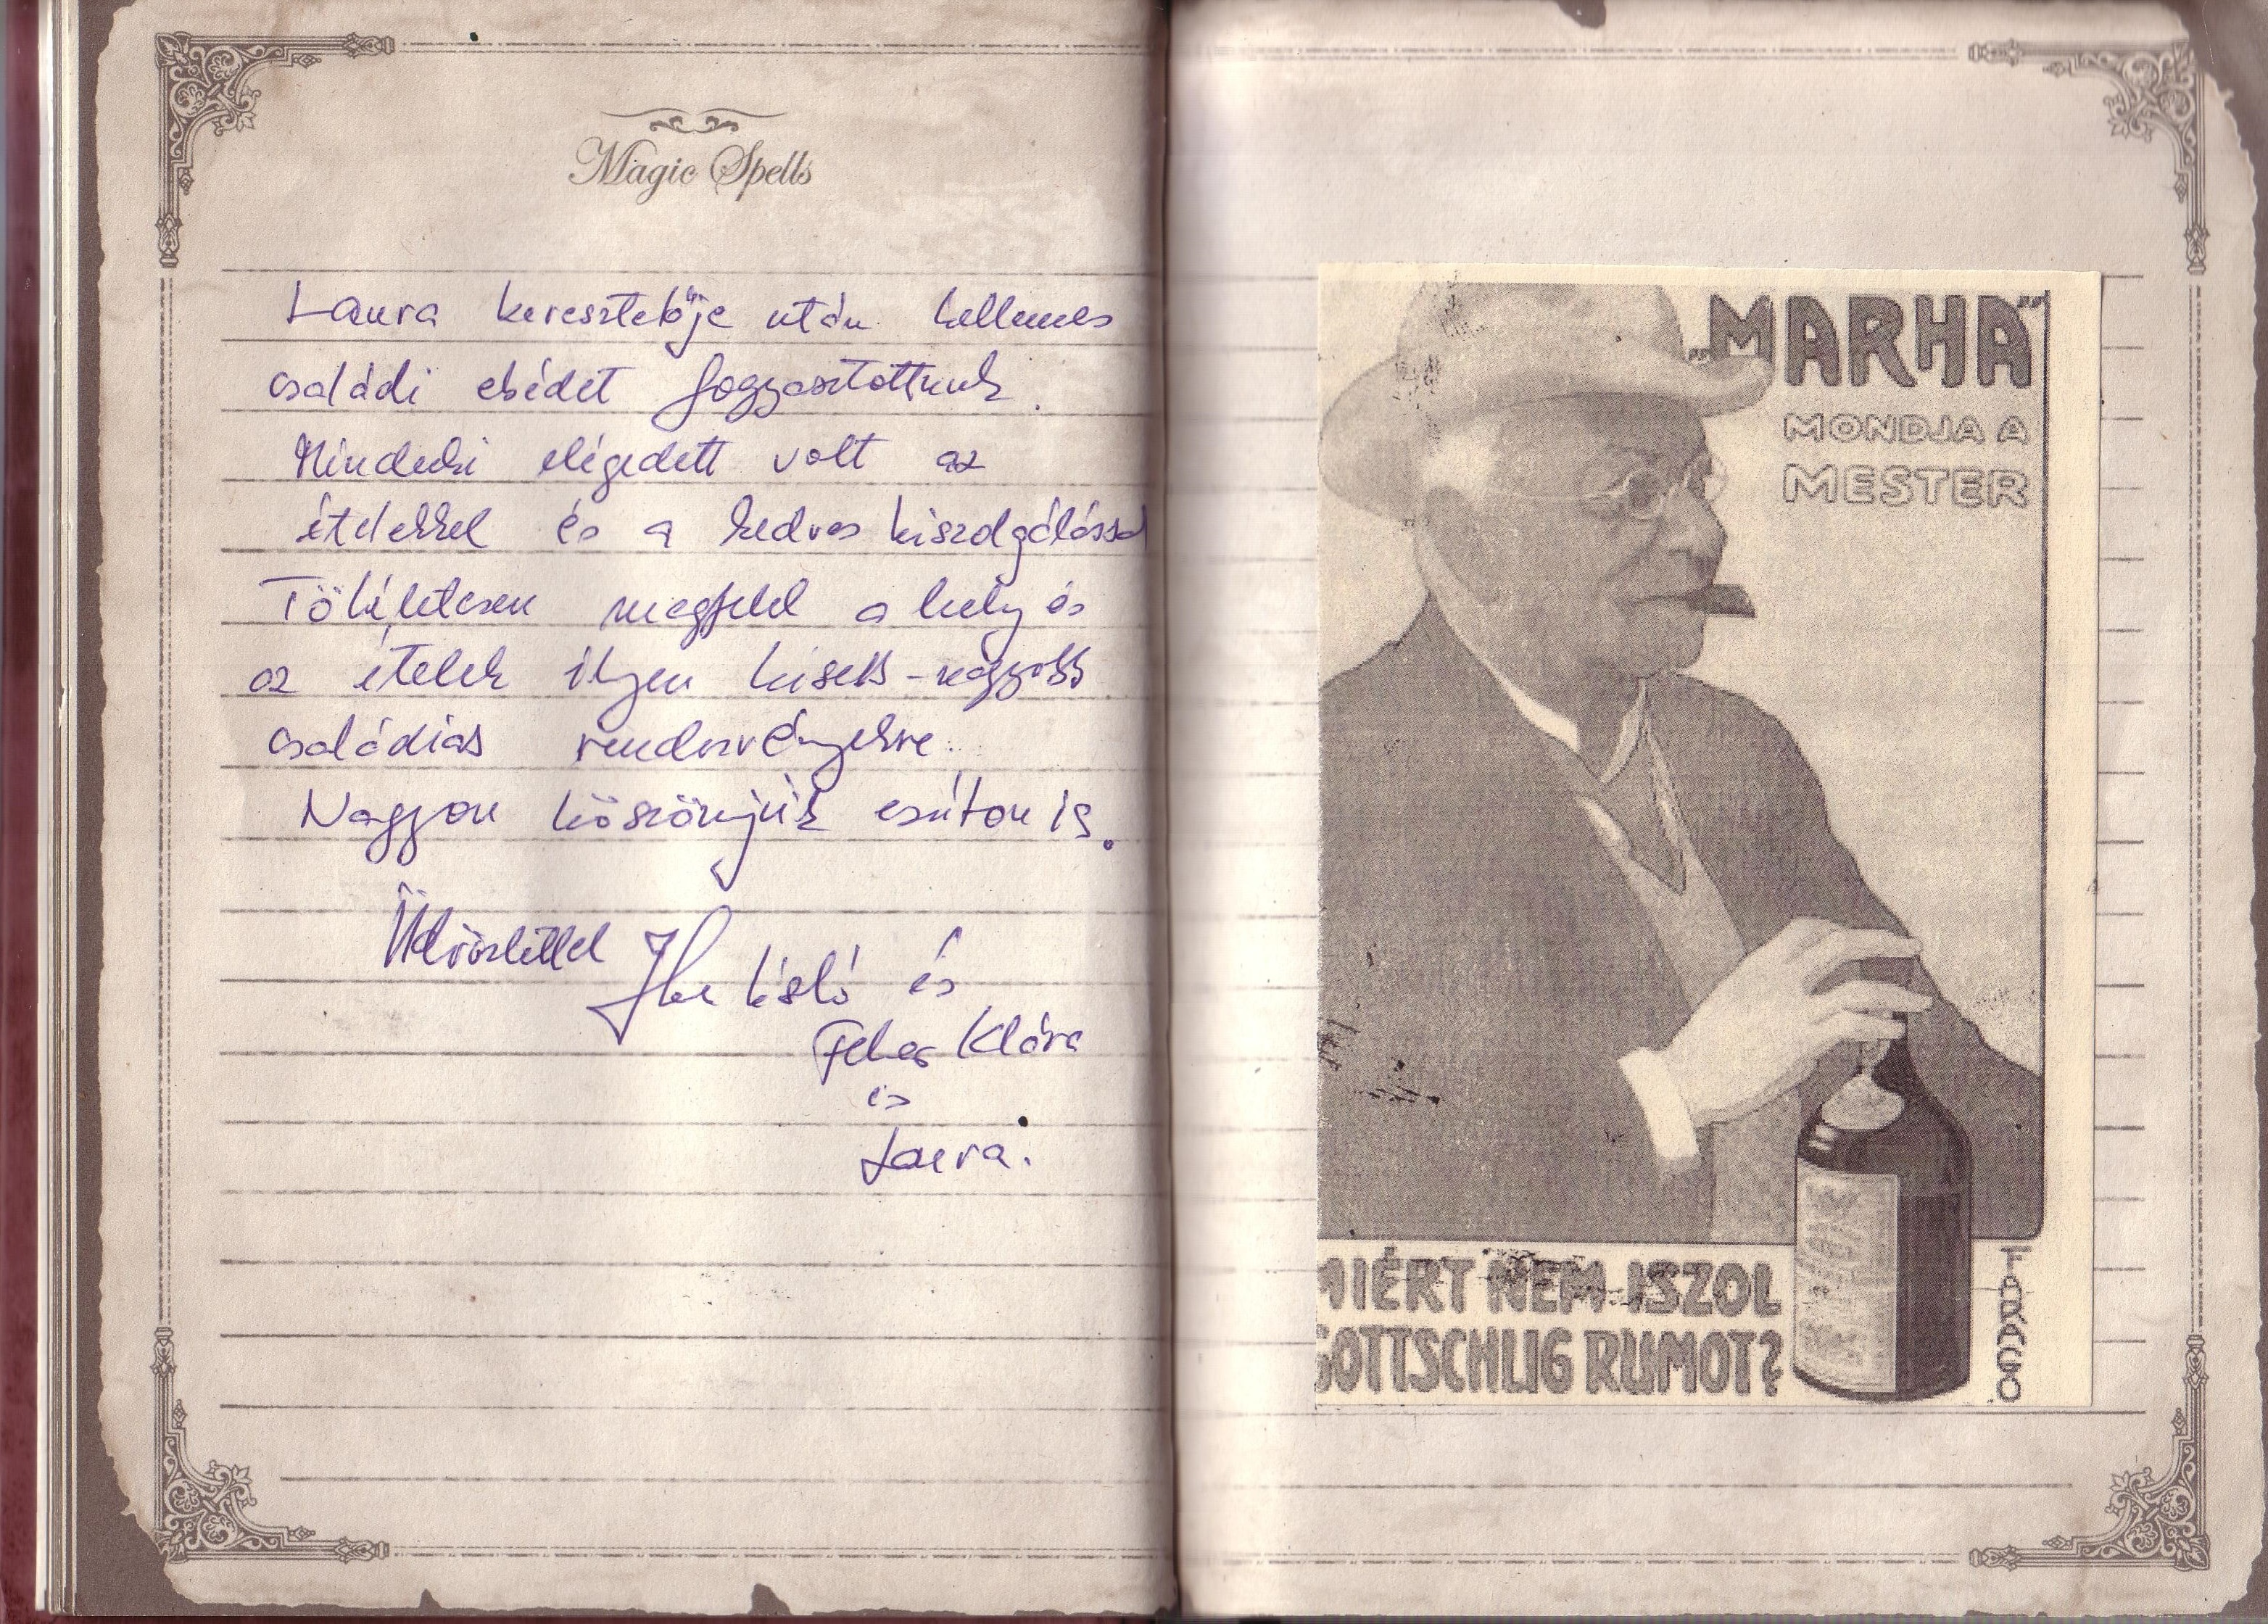 Magic Spells
Laura keresztelője után kellemes
családi ebédet fogyasztottunk.
Mindenki elégedett volt az
ételekkel és a kedves kiszolgálással
Tökéletesen megfelel a hely és
az ételek ilyen kisebb-nagyobb
családias rendezvényekre.
Nagyon köszönjük ezúton is.
Üdvözlettel László és
Klára
és
Laura.
„MARHA"
MONDJA A
MESTER
MIÉRT NEM ISZOL
GOTTSCHLIG RUMOT?
FARAGÓ